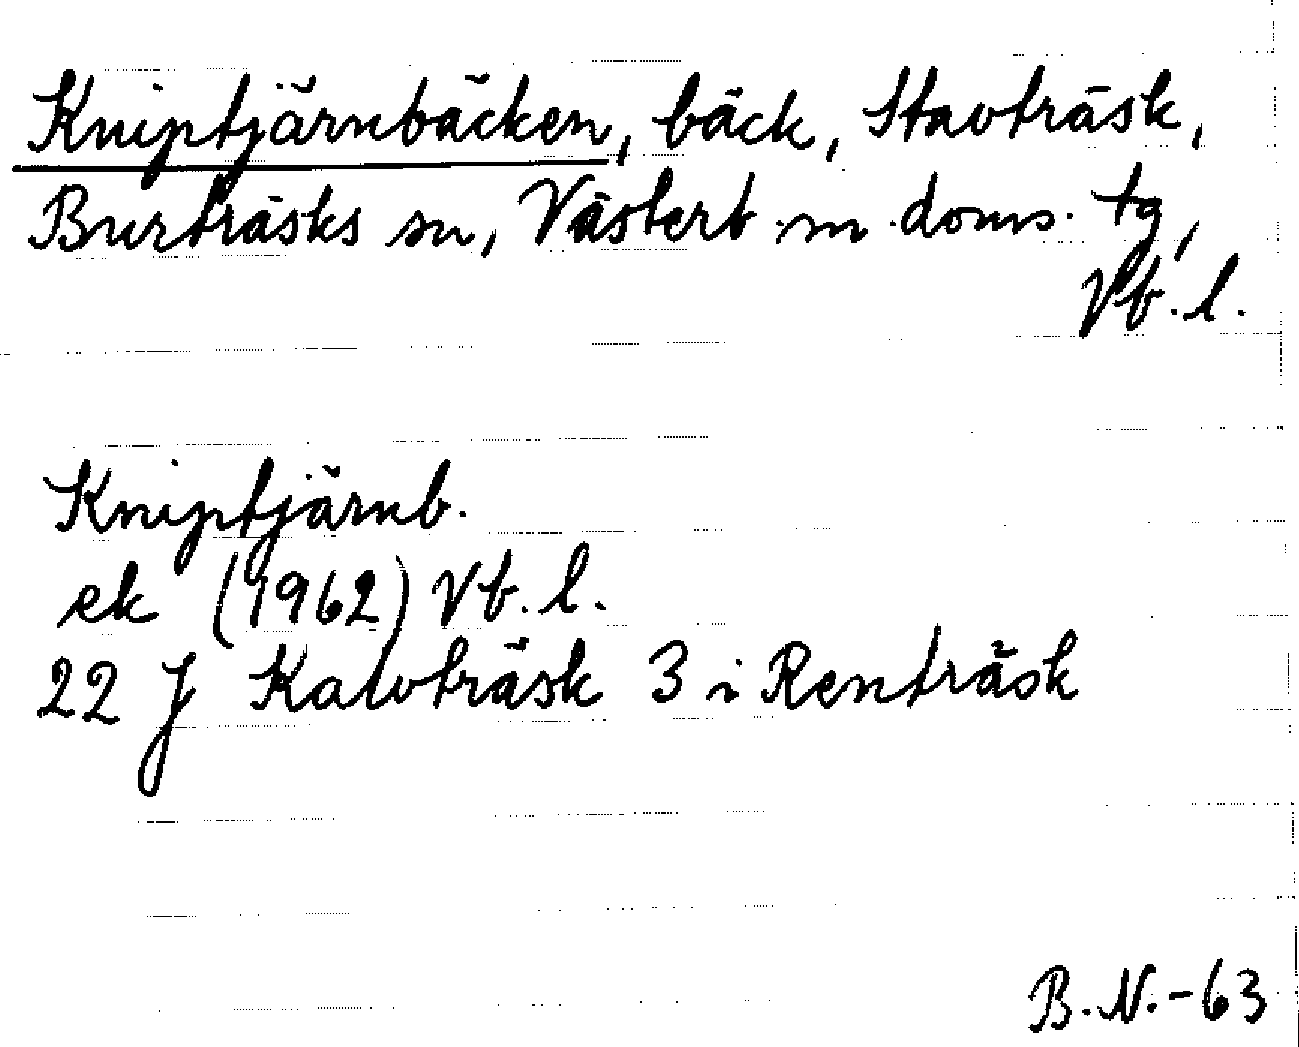 Kniptjärnbäcken, bäck, Stavträsk,
Burträsks sn, Västerb. m. doms. tg,
Vb. l.
Kniptjärnb.
ek (1962) Vb. l.
22 J Kalvträsk 3 i Renträsk
B.N.-63